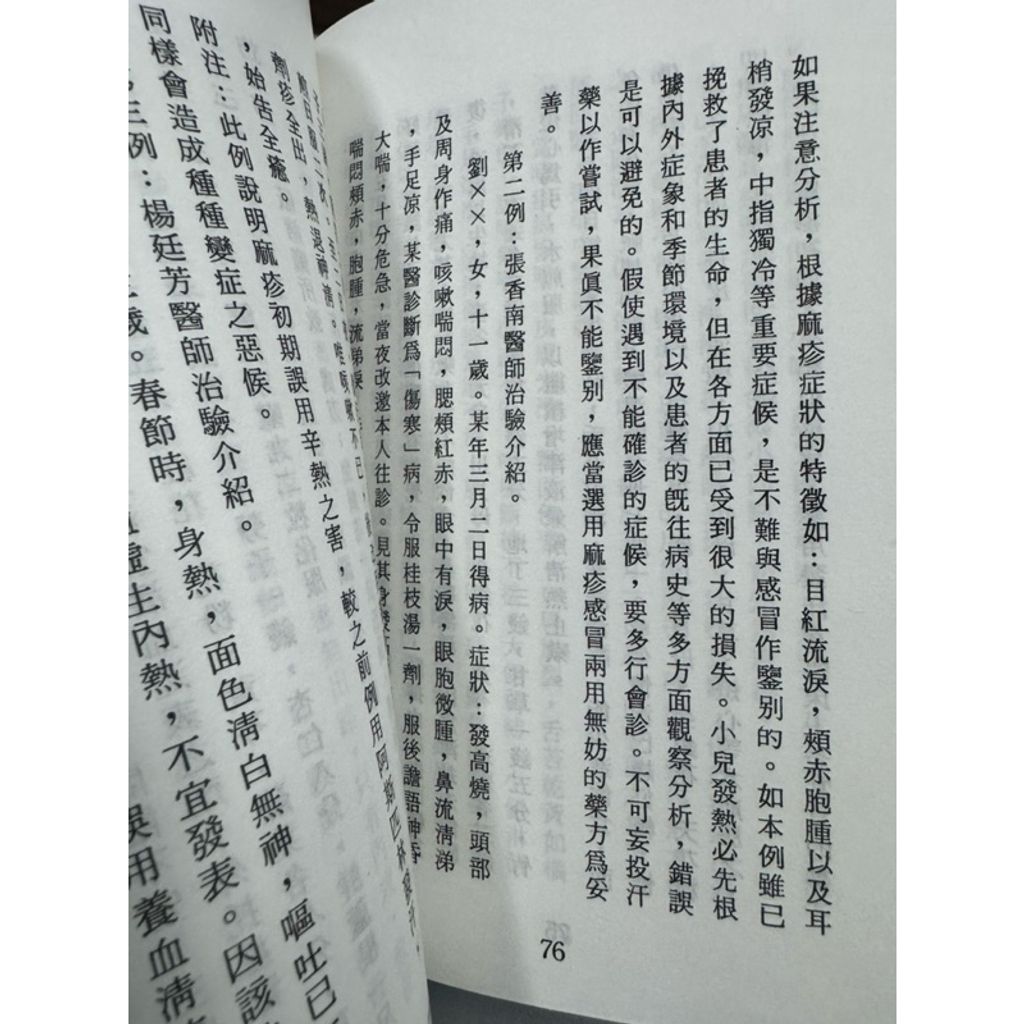 如果注意分析，根據麻疹症狀的特徵如：目紅流淚，頰赤胞腫以及耳
梢發凉，中指獨冷等重要症候，是不難與感冒作鑒别的。如本例雖已
挽救了患者的生命，但在各方面已受到很大的損失。小兒發熱必先根
據內外症象和季節環境以及患者的旣往病史等多方面觀察分析，錯誤
是可以避免的。假使遇到不能確診的症候，要多行會診。不可妄投汗
藥以作嘗試，果眞不能鑒别，應當選用麻疹感冒兩用無妨的藥方爲妥
善。
第二例：張香南醫師治驗介紹。
劉××，女，十一歲。某年三月二日得病。症狀：發高燒，頭部
及周身作痛，咳嗽喘悶，腮頰紅赤，眼中有淚，眼胞微腫，鼻流淸涕
，手足凉，某醫診斷爲「傷寒」病，令服桂枝湯一劑，服後譫語神昏
大喘，十分危急，當夜改邀本人往診。見其身
喘悶頰赤，胞腫，流涕淚
76
劑疹全出，熱退神淸。
，始告全癒。
附注：此例說明麻疹初期誤用辛熱之害，較之前例用阿
同樣會造成種種變症之惡候。
三例：楊廷芳醫師治驗介紹。
歲。春節時，身熱，面色淸白無神，嘔吐已
虛生內熱，不宜發表。因該
誤用養血淸